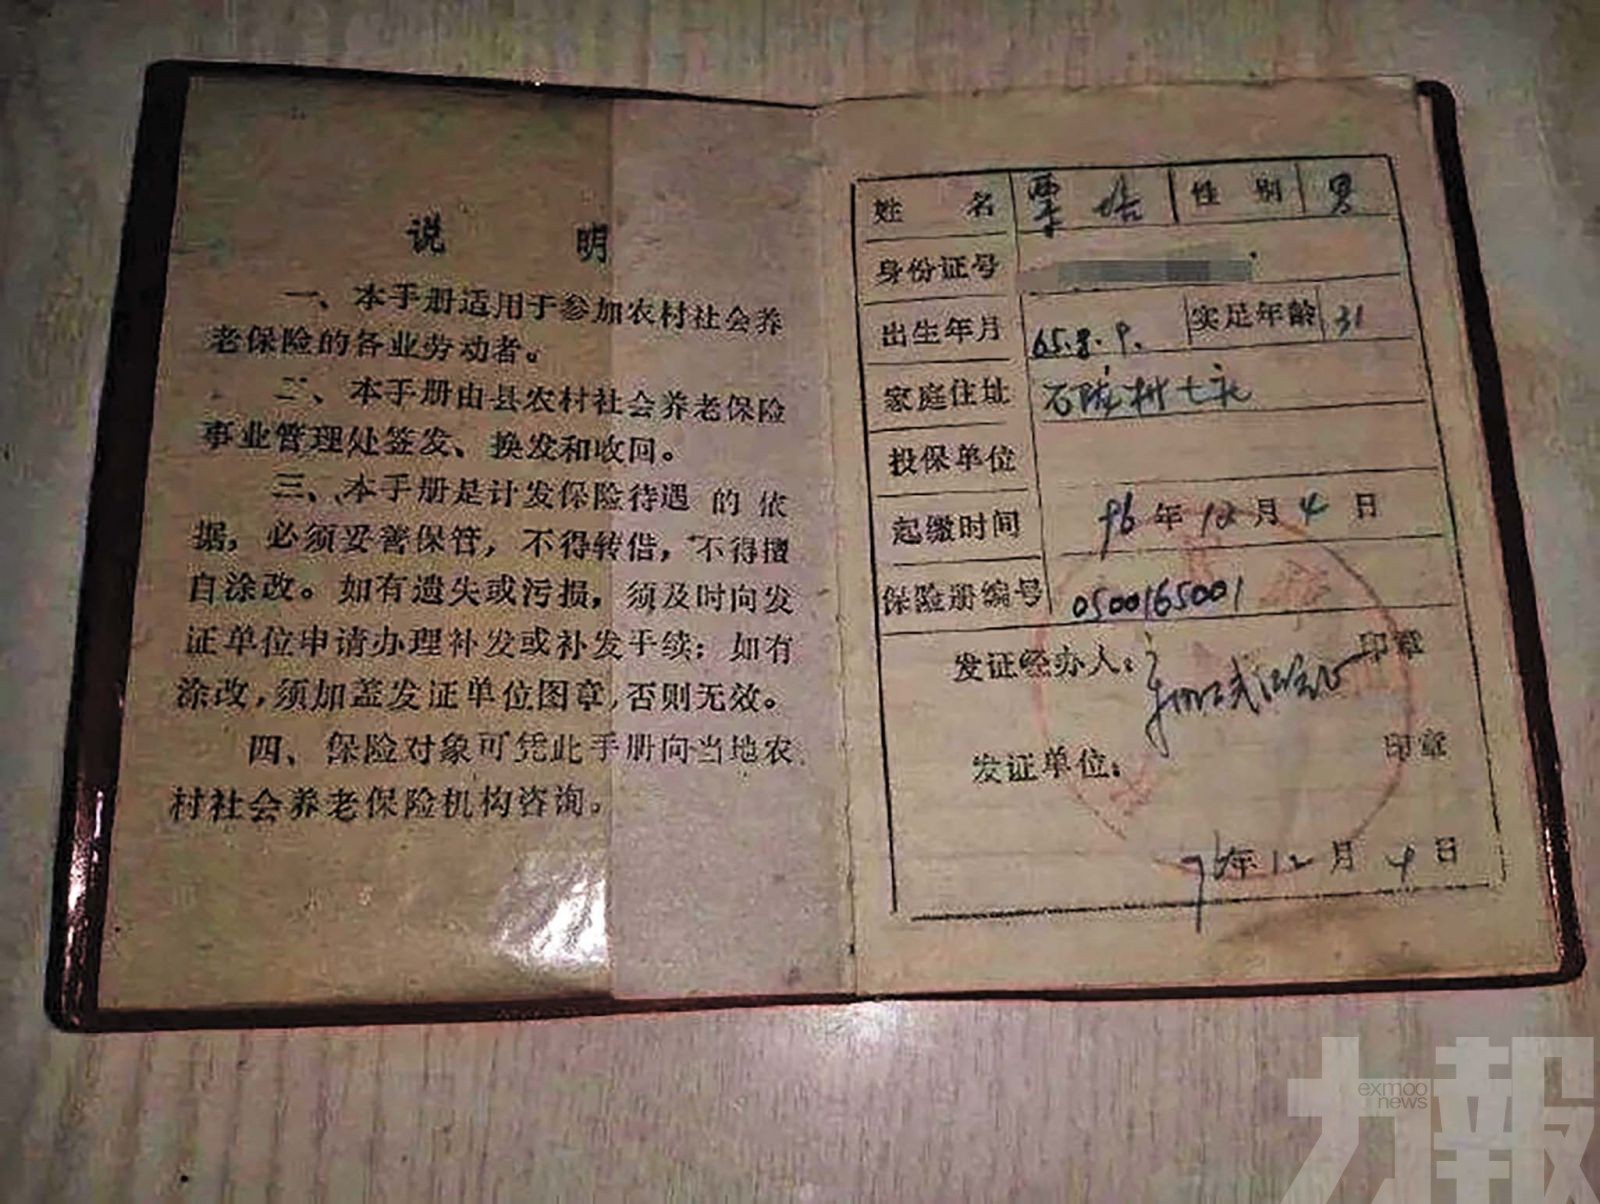 说 明
一、本手册适用于参加农村社会养
老保险的各业劳动者。
二、本手册由县农村社会养老保险
事业管理处签发、换发和收回。
三、本手册是计发保险待遇的依
据，必须妥善保管，不得转借，不得擅
自涂改。如有遗失或污损，须及时向发
证单位申请办理补发或补发手续；如有
涂改，须加盖发证单位图章，否则无效。
四、保险对象可凭此手册向当地农
村社会养老保险机构咨询。
姓 名 覃 性 别 男
身份证号
出生年月 65.8.9. 实足年龄 31
家庭住址 石陇村七礼
投保单位
起缴时间 96年12月4日
保险册编号 0500165001
发证经办人： 印章
发证单位： 印章
96年12月4日
力報
exmoo
news